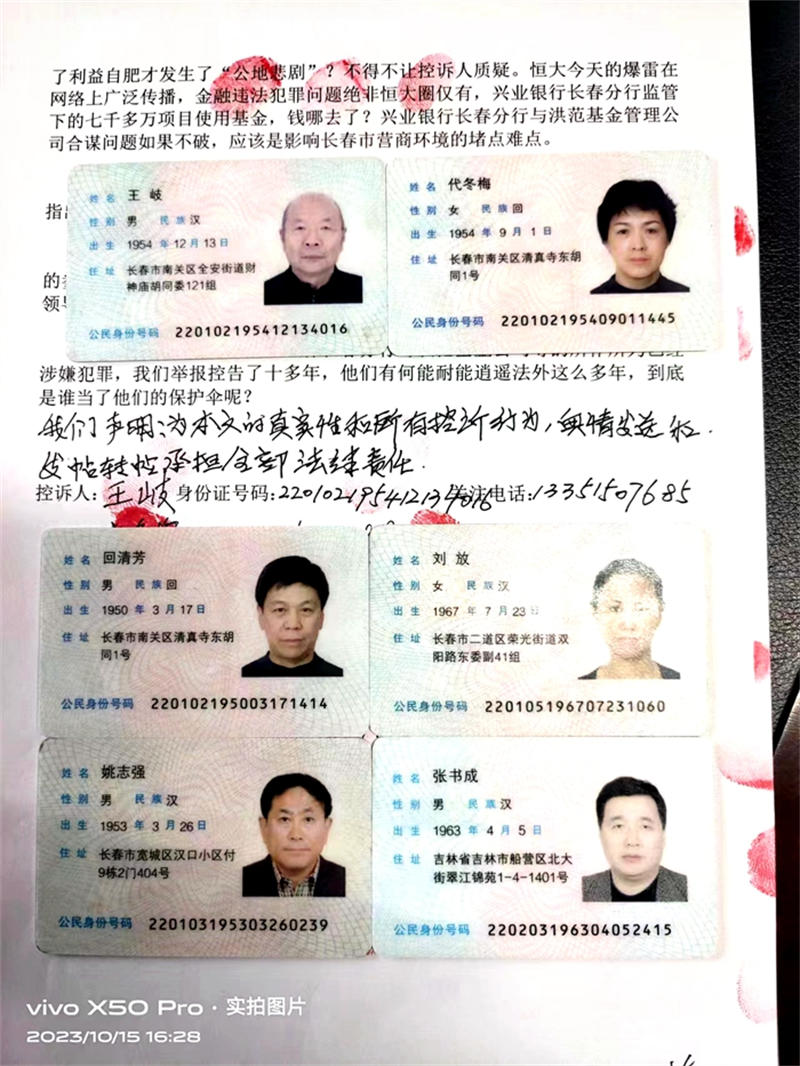 了利益自肥才发生了“公地悲剧”？不得不让控诉人质疑。恒大今天的爆雷在
网络上广泛传播，金融违法犯罪问题绝非恒大圈仅有，兴业银行长春分行监管
下的七千多万项目使用基金，钱哪去了？兴业银行长春分行与洪范基金管理公
司合谋问题如果不破，应该是影响长春市营商环境的堵点难点。
指出
的
领导
姓名 王岐
性别 男 民族 汉
出生 1954 年 12 月 13 日
住址 长春市南关区全安街道财
神庙胡同委121组
公民身份号码 220102195412134016
姓名 代冬梅
性别 女 民族 回
出生 1954 年 9 月 1 日
住址 长春市南关区清真寺东胡
同1号
公民身份号码 220102195409011445
涉嫌犯罪，我们举报控告了十多年，他们有何能耐能逍遥法外这么多年，到底
是谁当了他们的保护伞呢？
我们声明：为本文的真实性和所有控诉行为，舆情发送和
发帖转帖承担全部法律责任.
控诉人：王岐 身份证号码：220102195412134016 关注电话：13351507685
姓名 回清芳
性别 男 民族 回
出生 1950 年 3 月 17 日
住址 长春市南关区清真寺东胡
同1号
公民身份号码 220102195003171414
姓名 刘放
性别 女 民族 汉
出生 1967 年 7 月 23 日
住址 长春市二道区荣光街道双
阳路东委副41组
公民身份号码 220105196707231060
姓名 姚志强
性别 男 民族 汉
出生 1953 年 3 月 26 日
住址 长春市宽城区汉口小区付
9栋2门404号
公民身份号码 220103195303260239
姓名 张书成
性别 男 民族 汉
出生 1963 年 4 月 5 日
住址 吉林省吉林市船营区北大
街翠江锦苑1-4-1401号
公民身份号码 220203196304052415
vivo X50 Pro · 实拍图片
2023/10/15 16:28